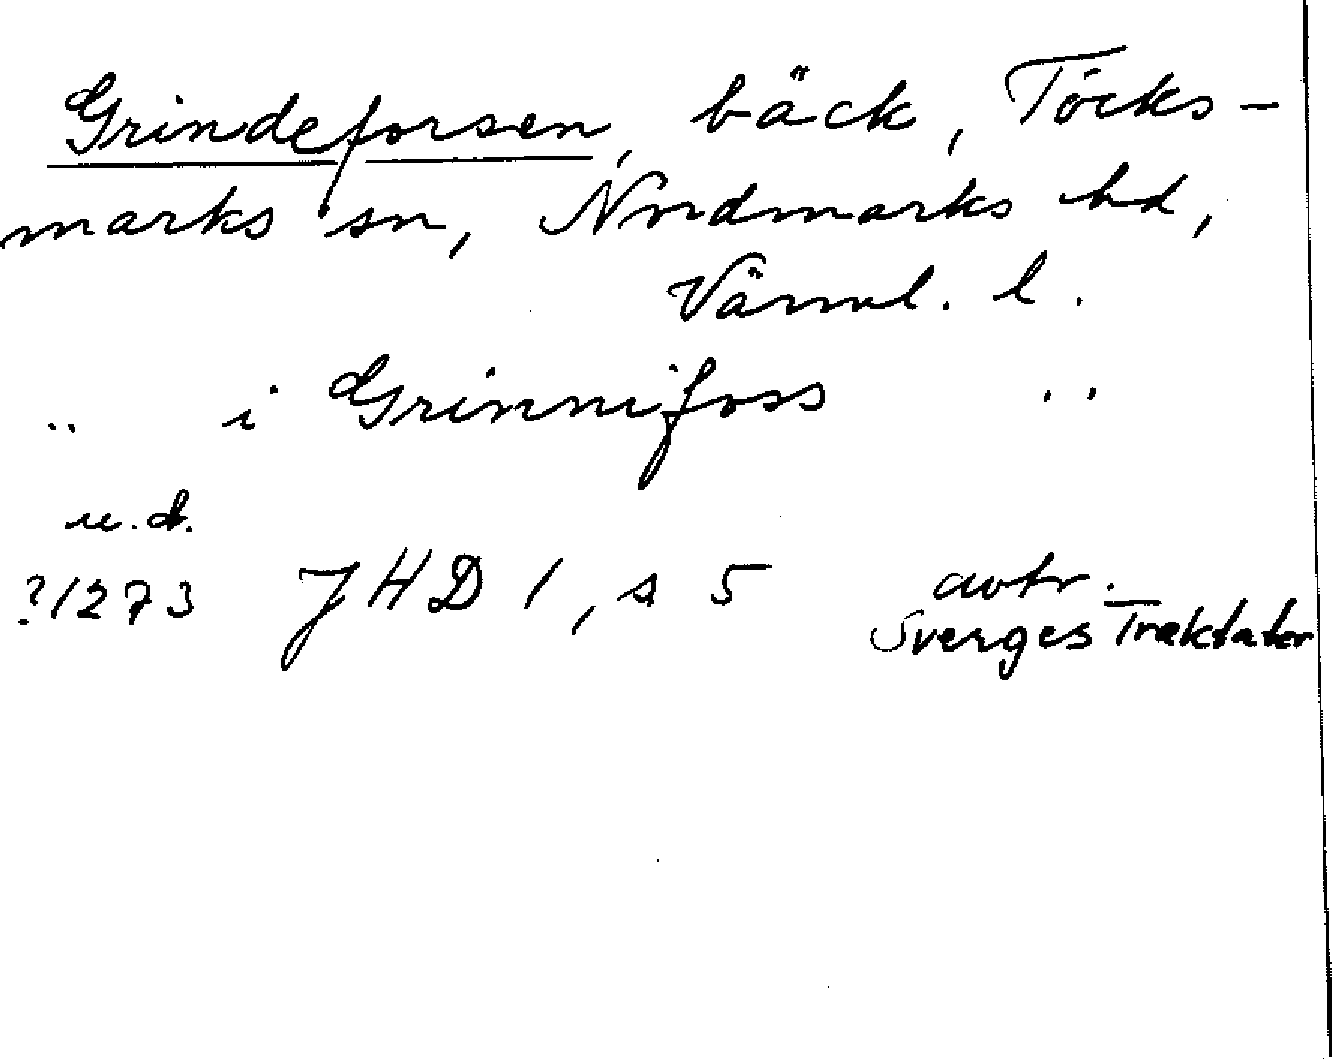 Grindeforsen, bäck, Töcks-
marks sn, Nordmarks hd,
Värml. l.
.. i Grinnifoss ..
u.d.
?1273 JHD 1, s 5 avtr.
Sverges Traktater